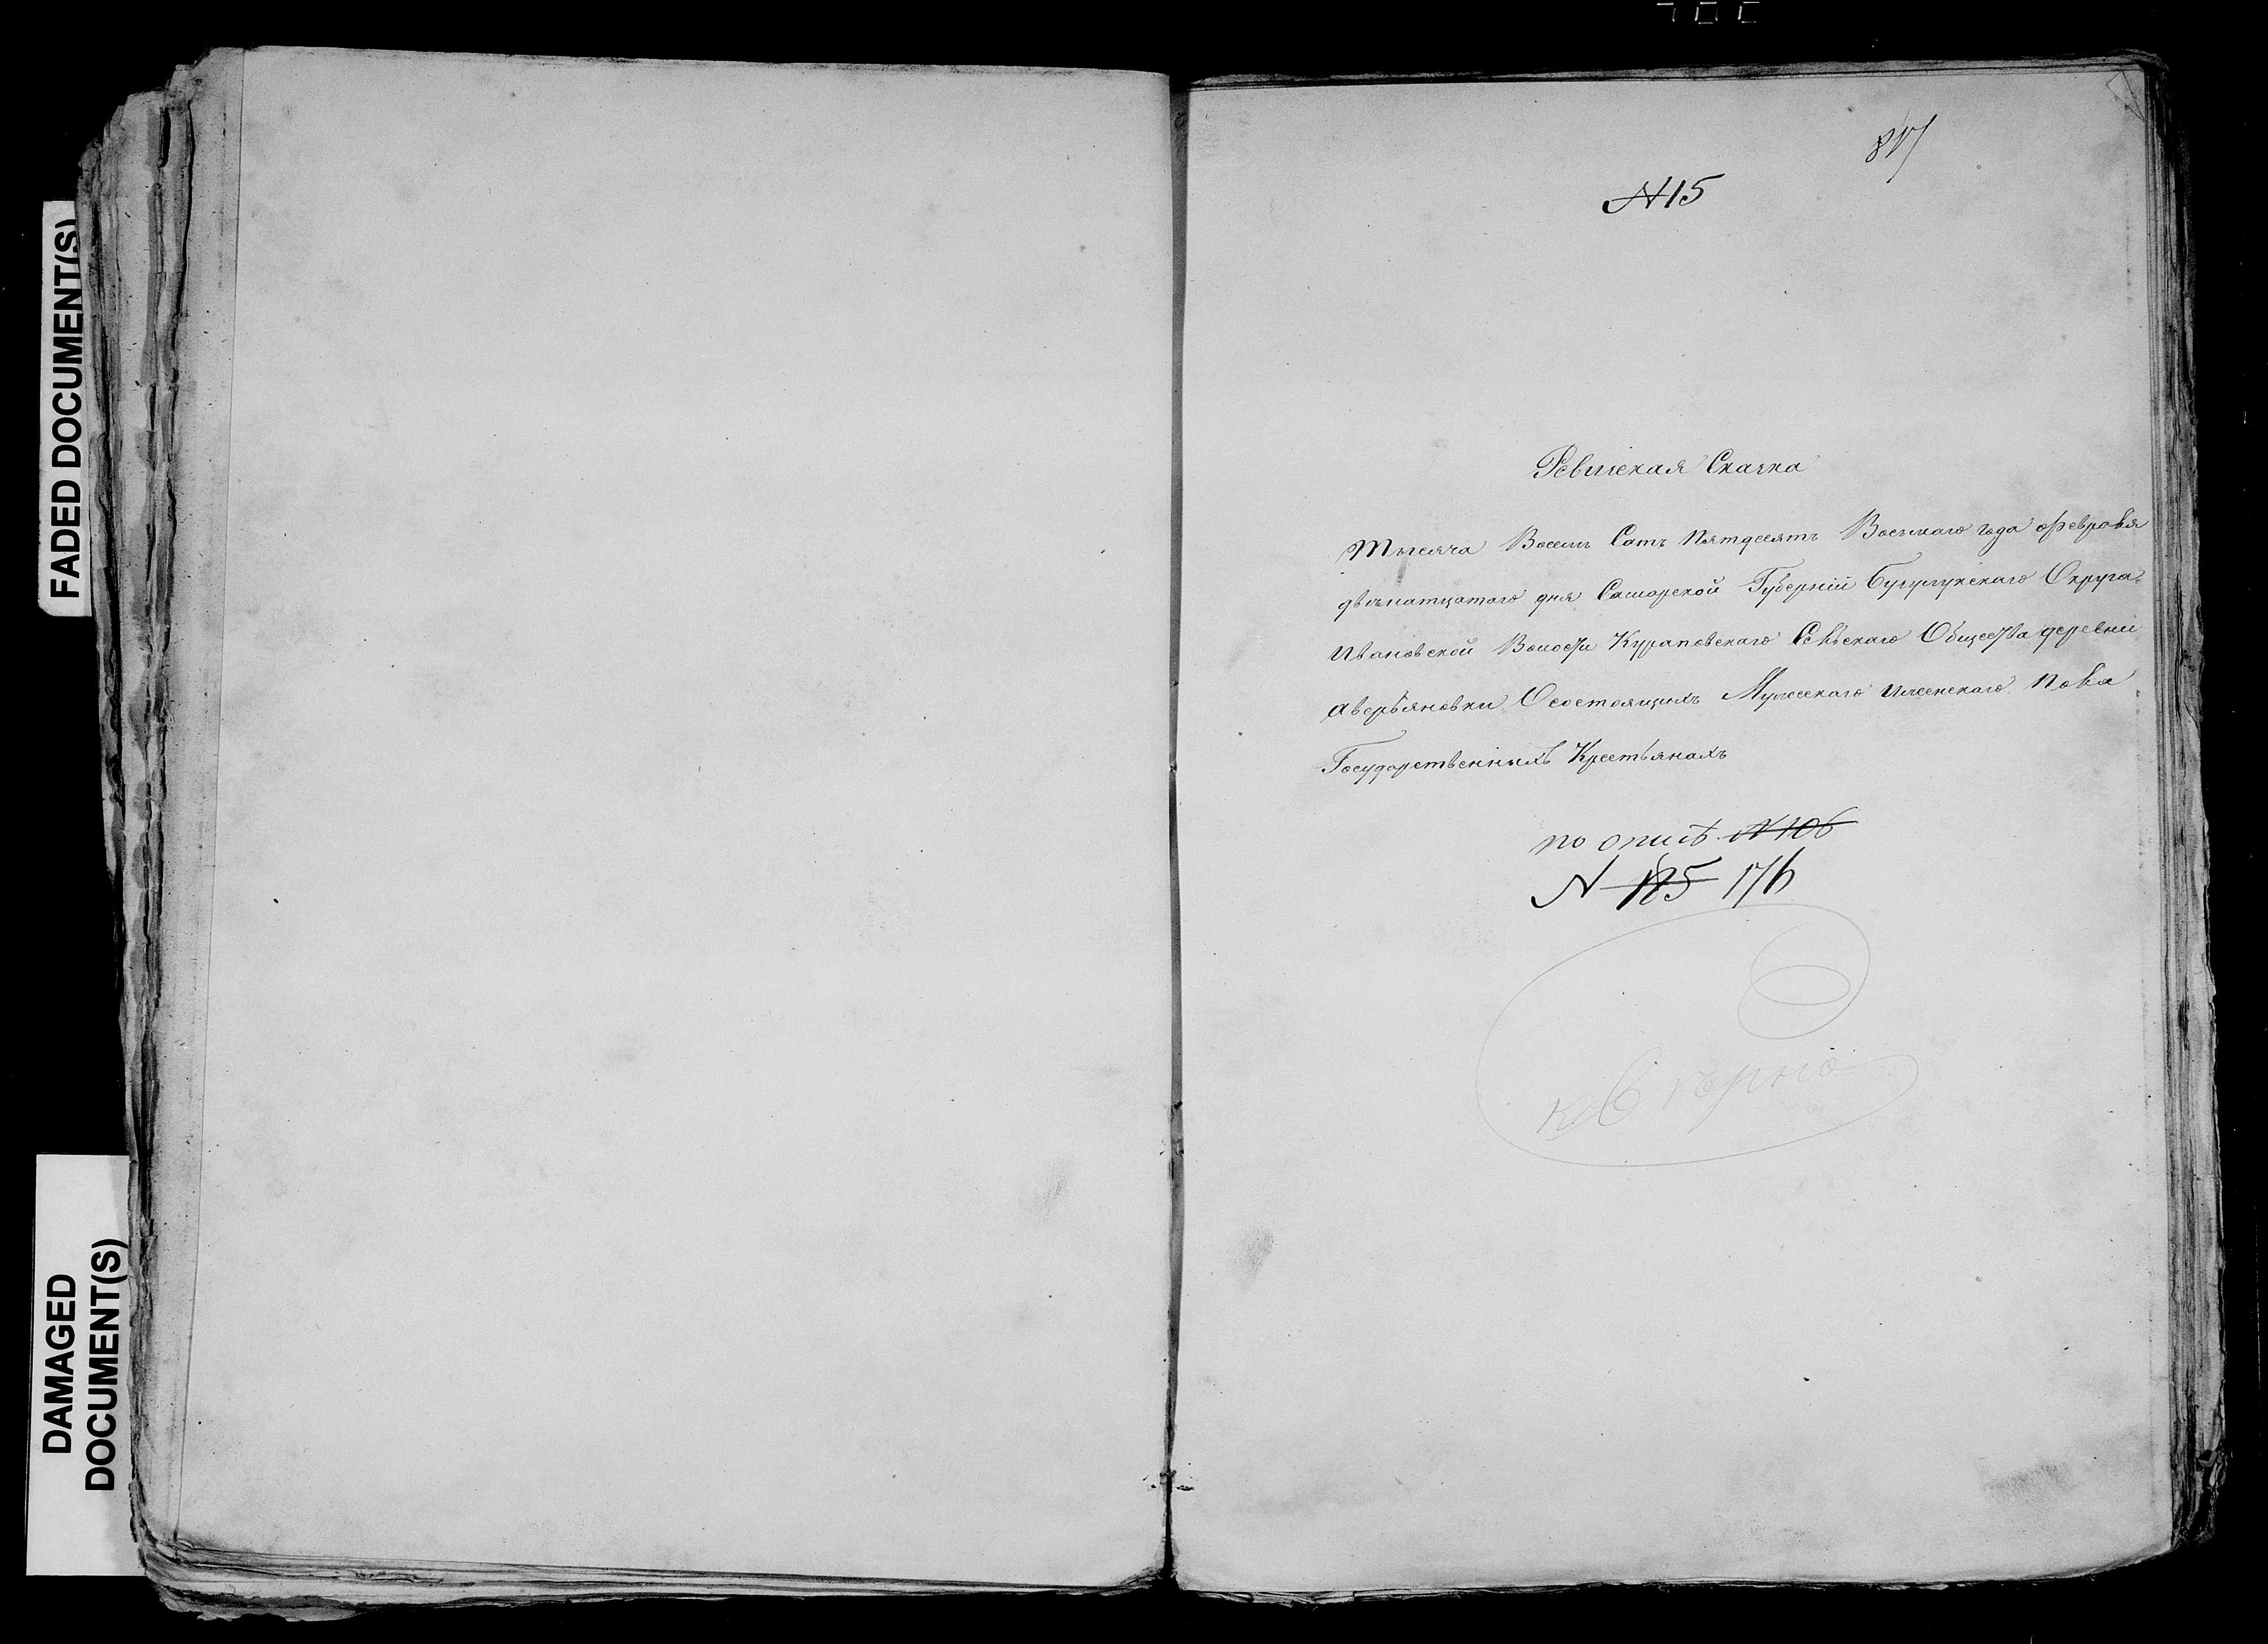 817
N 15
FADED DOCUMENT(S)
Ревизская Сказка
Тысяча Восемь Сотъ Пятдесятъ Восьмаго года февраля
двенатцатаго дня Самарской Губерніи Бугурусланскаго Округа
Ивановской Волости Кураповскаго Сельскаго Общества деревни
Аверьяновки О состоящихъ Мужескаго и женскаго пола
Государственныхъ Крестьянахъ
по описѣ N 106
N 185 176
DAMAGED
DOCUMENT(S)